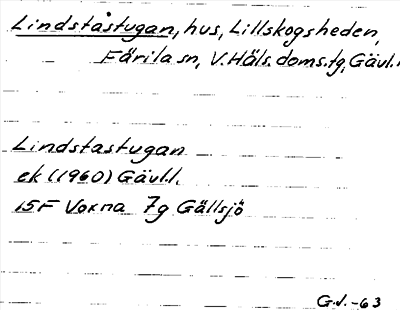 Lindståstugan, hus, Lillskogsheden,
Färila sn, V. Häls. doms. tg, Gävl.
Lindstastugan
ek (1960) Gävl. l.
15F Voxna 7g Gällsjö
G.J.-63